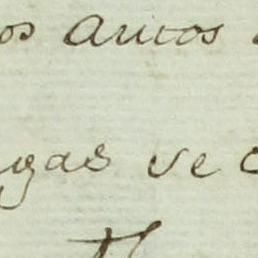 os autos
gas se